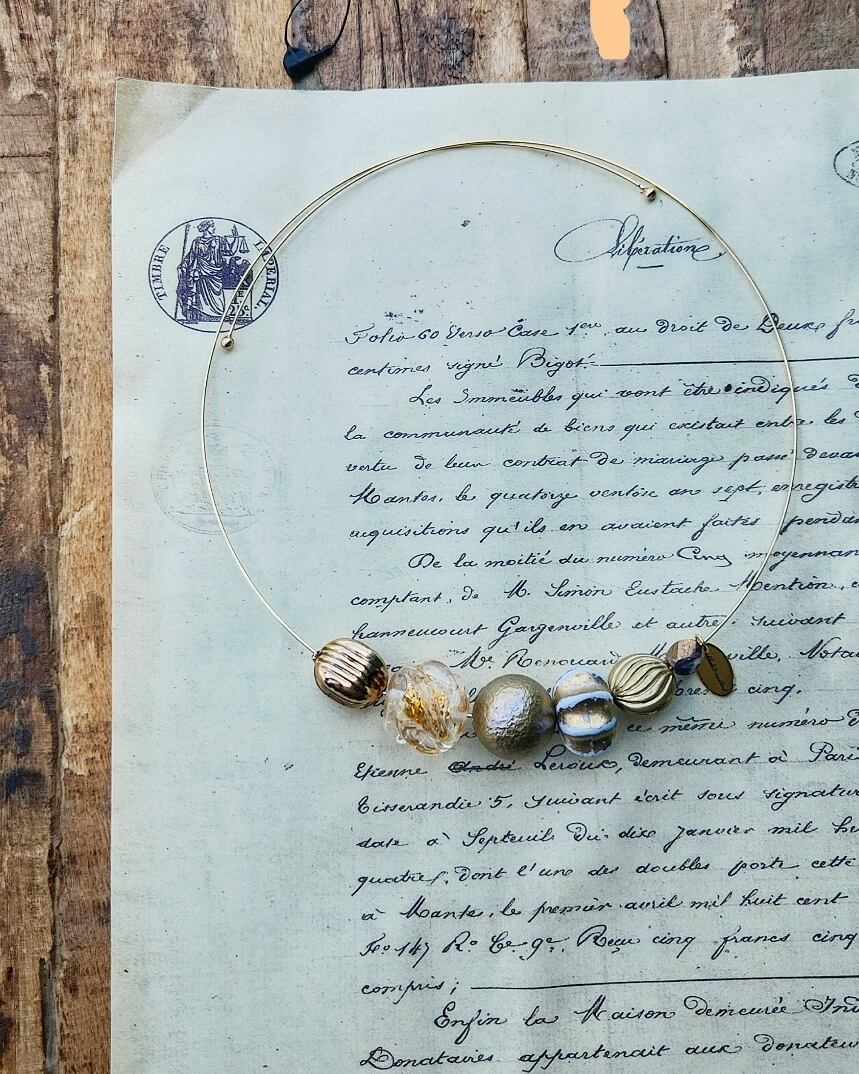 TIMBRE IMPERIAL
Libération
Folio 60 Verso Case 1ere, au droit de Deux
centimes signé Bigot.
Les Immeubles qui vont être indiqués
la communauté de biens qui existait entre les
vertu de leur contrat de mariage passé devan
Mantes, le quatorze ventôse an sept, enregist
acquisitions qu'ils en avaient faites pendan
De la moitié du numéro Cinq moyennan
comptant, de M. Simon Eustache Mention,
hanneucourt Gargenville et autre, suivant
Me Renouard ville, Nota
cinq.
ce même numéro
Etienne André Leroux, demeurant à Pari
Tisserandie 5, suivant écrit sous signatur
date à Septeuil du dix janvier mil hu
quatre, dont l'un des doubles porte cette
à Mante, le premier avril mil huit cent
Fo 147 Ro Ce 9e, Reçu cinq francs cinq
compris;
Enfin la Maison demeurée
Donataires appartenait aux donateu